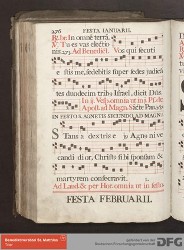 FESTA IANUARII.
R. br. In omnē terrā.
V. Tu es vas electio
Ad Benedict. Vos qui secuti
estis me, sedebitis super sedes judicā
tes duodecim tribus Israel, dicit Dñs
In ij. Vesp. omnia ut in j. Vesp.
IN FESTO S. AGNETIS SECUNDO. AD MAGN:
Stans a dextris ejus Agnus nive
candidior, Christus sibi sponsam &
martyrem consecravit.
Ad Laud. & per Hor. omnia ut in festo
FESTA FEBRUARII.
DFG